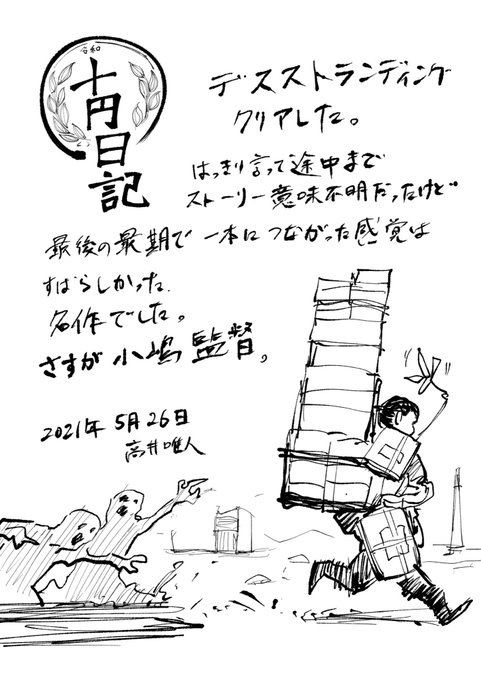 令和
十円日記
デスストランディング
クリアした。
はっきり言って途中まで
ストーリー意味不明だったけど
最後の最期で一本につながった感覚は
すばらしかった.
名作でした。
さすが小嶋監督。
2021年5月26日
高井唯人